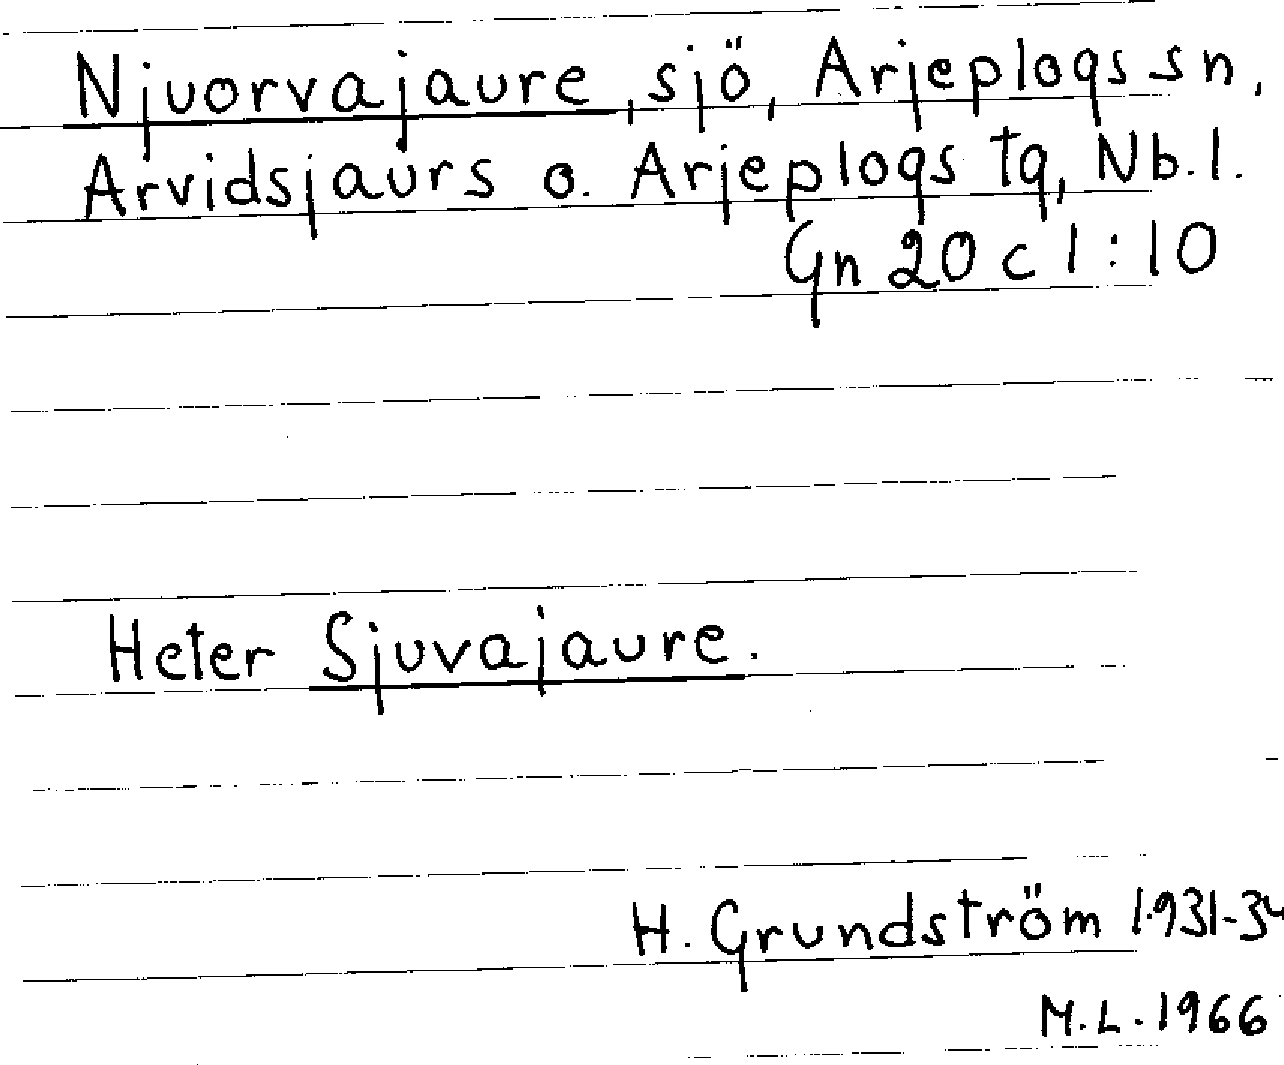 Njuorvajaure, sjö, Arjeplogs sn,
Arvidsjaurs o. Arjeplogs tg, Nb.l.
Gn 20 c 1:10
Heter Sjuvajaure.
H. Grundström 1931-34
M.L. 1966